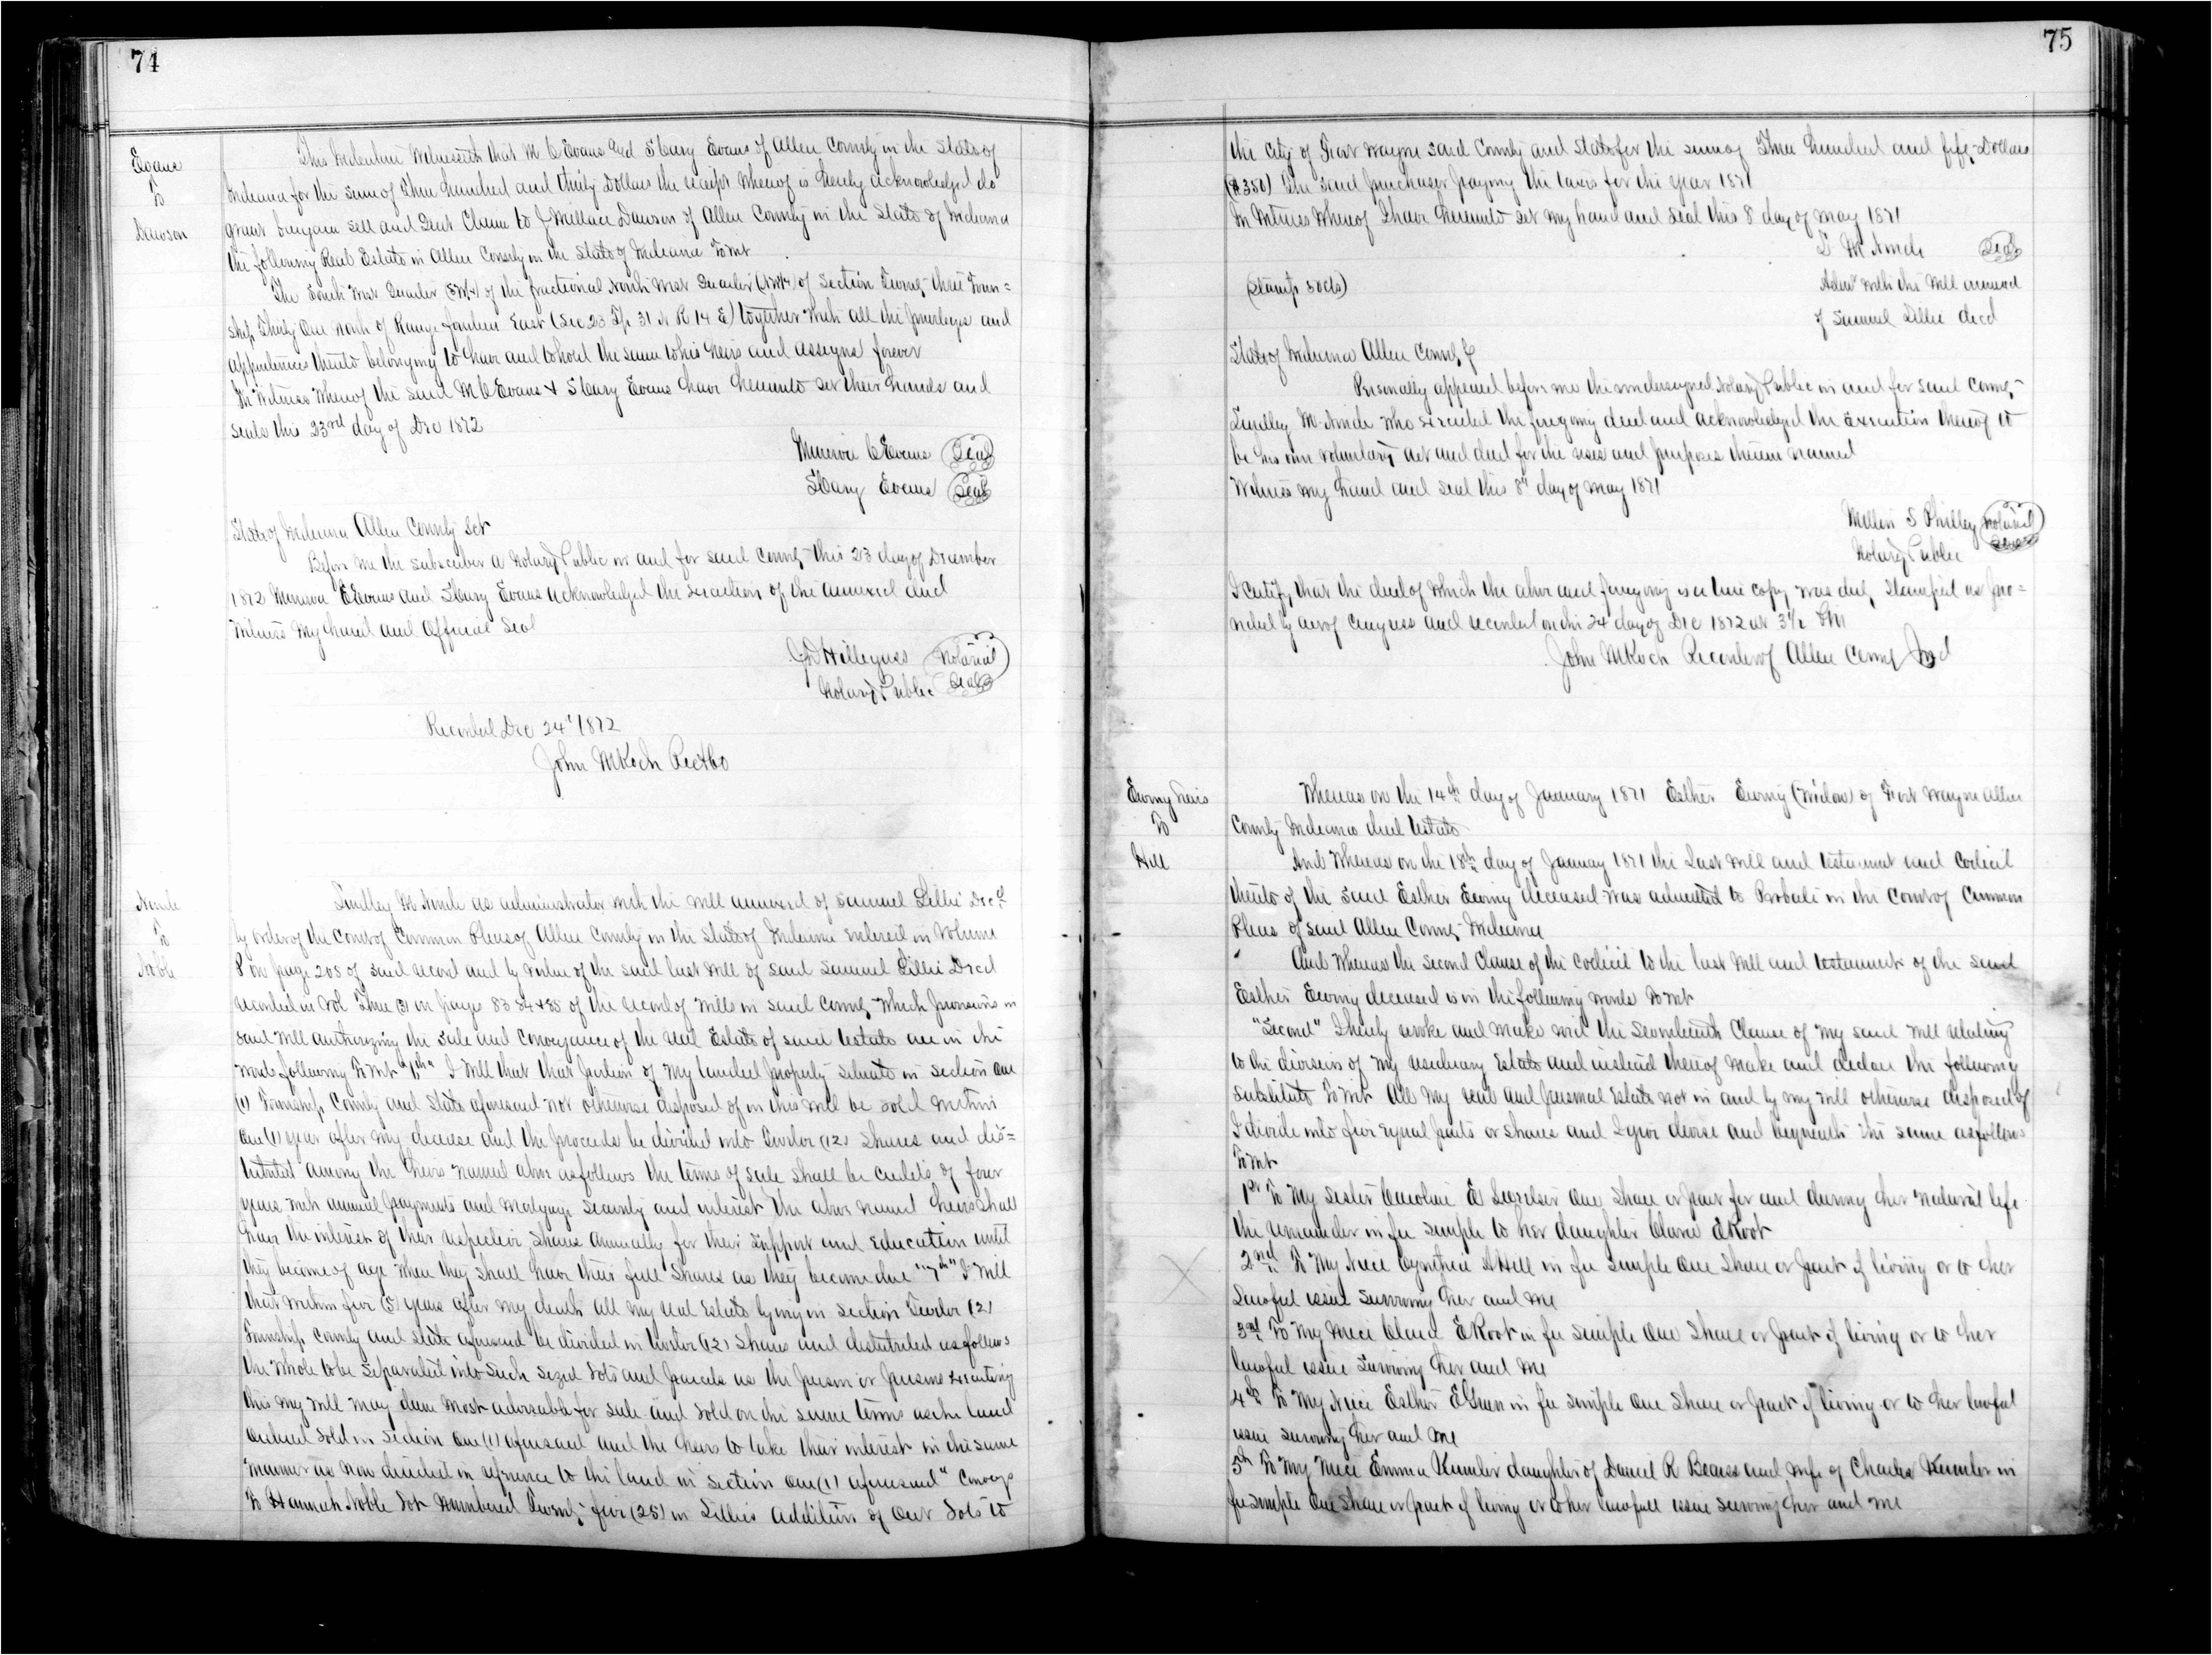 74
Evans
To
Dawson
This Indenture Witnesseth that M C Evans and S Cary Evans of Allen County in the State of
Indiana for the sum of Three hundred and thirty Dollars the receipt whereof is hereby acknowledged do
grant bargain sell and Quit Claim to J Wallace Dawson of Allen County in the State of Indiana
the following Real Estate in Allen County in the State of Indiana To Wit
The South West Quarter (SW¼) of the fractional North West Quarter (NW¼) of Section Twenty three Town=
ship Thirty One North of Range fourteen East (Sec 23 Tp 31 N R 14 E) together with all the privileges and
appurtenances thereto belonging to have and to hold the same to his heirs and assigns forever
In Witness Whereof the said M C Evans & S Cary Evans have hereunto set their hands and
seals this 23rd day of Dec 1872
Minerva C Evans (Seal)
S Cary Evans (Seal)
State of Indiana Allen County Sct
Before me the subscriber a Notary Public in and for said County this 23 day of December
1872 Minerva C Evans and S Cary Evans acknowledged the execution of the annexed deed
Witness My hand and Official Seal
J D Hillegass (Notarial
Notary Public Seal)
Recorded Dec 24" 1872
John M Koch
Ninde
To
Noble
Lindley M Ninde as administrator with the Will annexed of Samuel Lillie Decd
by order of the Court of Common Pleas of Allen County in the State of Indiana entered in Volume
8 on page 205 of said record and by virtue of the said last Will of said Samuel Lillie Decd
recorded in Vol Three (3) on pages 83 84 & 85 of the record of Wills in said County Which provisions in
said Will authorizing the sale and conveyance of the real Estate of said testate are in the
words following To Wit I Will that that portion of my landed property situate in section One
(1) Township County and State aforesaid not otherwise disposed of in this Will be sold within
One (1) year after my decease and the proceeds be divided into Twelve (12) Shares and dis=
tributed among the heirs named above as follows the terms of sale shall be credits of four
years with annual payments and Mortgage security and interest the above named heirs shall
have the interest of their respective shares annually for their support and Education until
they become of age When they shall have their full Shares as they become due "7th" I Will
that within five (5) years after my death all my real Estate lying in section Twelve (12)
Township County and State aforesaid be divided in twelve (12) Shares and distributed as follows
the whole to be separated into such sized lots and parcels as the person or persons executing
this my Will may deem most advisable for sale and sold on the same terms as the land
ordered sold in section One (1) aforesaid and the heirs to take their interest in the same
manner as now directed in reference to the land in section One (1) aforesaid" Conveys
To Hannah Noble Lot Numbered Twenty five (25) in Lillies Addition of Out Lots to
75
the City of Fort Wayne said County and State for the sum of Three hundred and fifty Dollars
($350) the said purchaser paying the taxes for the year 1871
In Witness Whereof I have hereunto set my hand and seal this 8 day of May 1871
L M Ninde (Seal)
(Stamp 50cts)
Admr with the Will annexed
of Samuel Lillie decd
State of Indiana Allen County
Personally appeared before me the undersigned Notary Public in and for said County
Lindley M Ninde who executed the foregoing deed and acknowledged the Execution thereof to
be his own voluntary act and deed for the uses and purposes therein named
Witness my hand and seal this 8" day of May 1871
S Philley (Notarial
Notary Public Seal)
I certify that the deed of which the above and foregoing is a true copy was duly Stamped as pro=
vided by act of Congress and recorded on this 24 day of Dec 1872 at 3½ PM
John M Koch Recorder of Allen County Ind
Ewing heirs
To
Hill
Whereas on the 14th day of January 1871 Esther Ewing (Widow) of Fort Wayne Allen
County Indiana died testate
And Whereas on the 18th day of January 1871 the Last Will and testament and Codicil
thereto of the said Esther Ewing deceased was admitted to Probate in the Court of Common
Pleas of said Allen County Indiana
And Whereas the second Clause of the Codicil to the last Will and testament of the said
Esther Ewing deceased is in the following words To Wit
"Second" I hereby revoke and make void the Seventeenth Clause of my said Will relating
to the division of my residuary Estate and instead thereof make and declare the following
substitute To Wit All my real and personal Estate not in and by my Will otherwise disposed of
I divide into five equal parts or shares and I give devise and bequeath the same as follows
To Wit
1st To My sister Caroline E One Share or part for and during her natural life
the remainder in fee simple to her daughter Clara E Root
2nd To My Niece Cynthia A Hill in fee simple One Share or part if living or to her
Lawful issue surviving her and me
3rd To My niece Clara E Root in fee simple One Share or part if living or to her
lawful issue surviving her and me
4th To My Niece Esther E Green in fee simple One Share or part if living or to her lawful
issue surviving her and me
5th To My Niece Emma Kumler daughter of Daniel R Bearss and wife of Charles Kumler in
fee simple One Share or part if living or to her lawfull issue surviving her and me